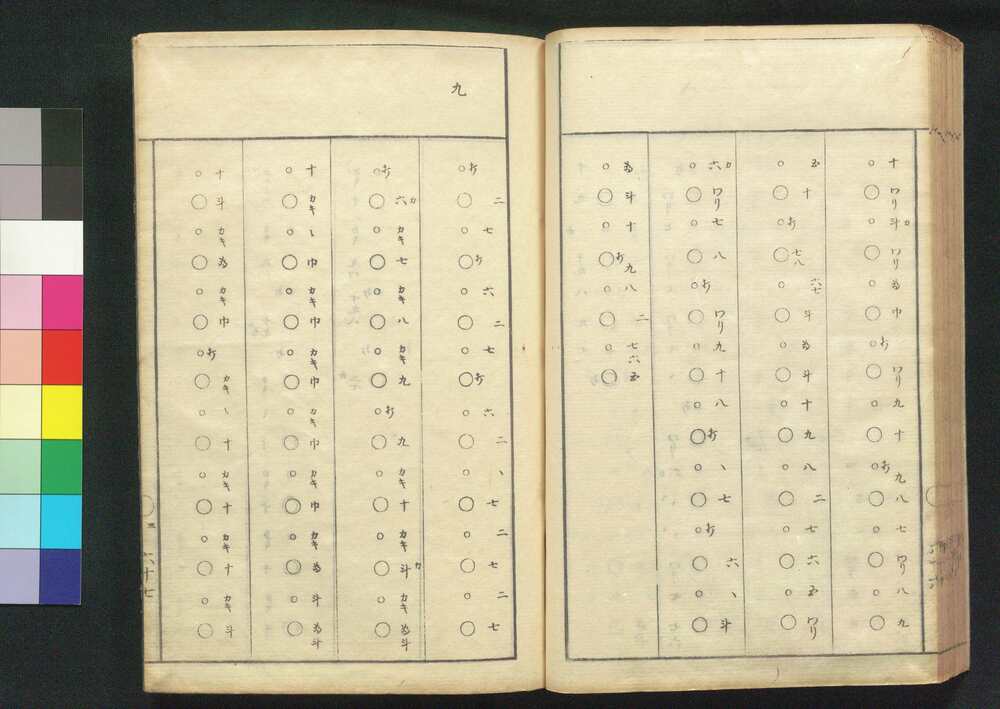 十 ワリ 斗 カ ワリ 為 巾 ワリ 九 十 九 八 七 ワリ 八 九
五 十 七八 六七 斗 為 斗 十 九 八 二 七 六 五 ワリ
六 カ ワリ 七 八 ワリ 九 十 八 、 七 六 、 斗
為 、 斗 十 九 八 二 七六五
九
二 七 六 二 七 六 二 、 七 二 七 二 七
六 カ カキ 七 カキ 八 カキ 九 九 カキ 十 カキ 斗 カ カキ 為斗
十 カキ 、 巾 カキ 巾 カキ 巾 カキ 巾 カキ 巾 カキ 為 斗 為斗
十 斗 カキ 為 カキ 巾 カキ 、 十 カキ 十 カキ 十 カキ 斗